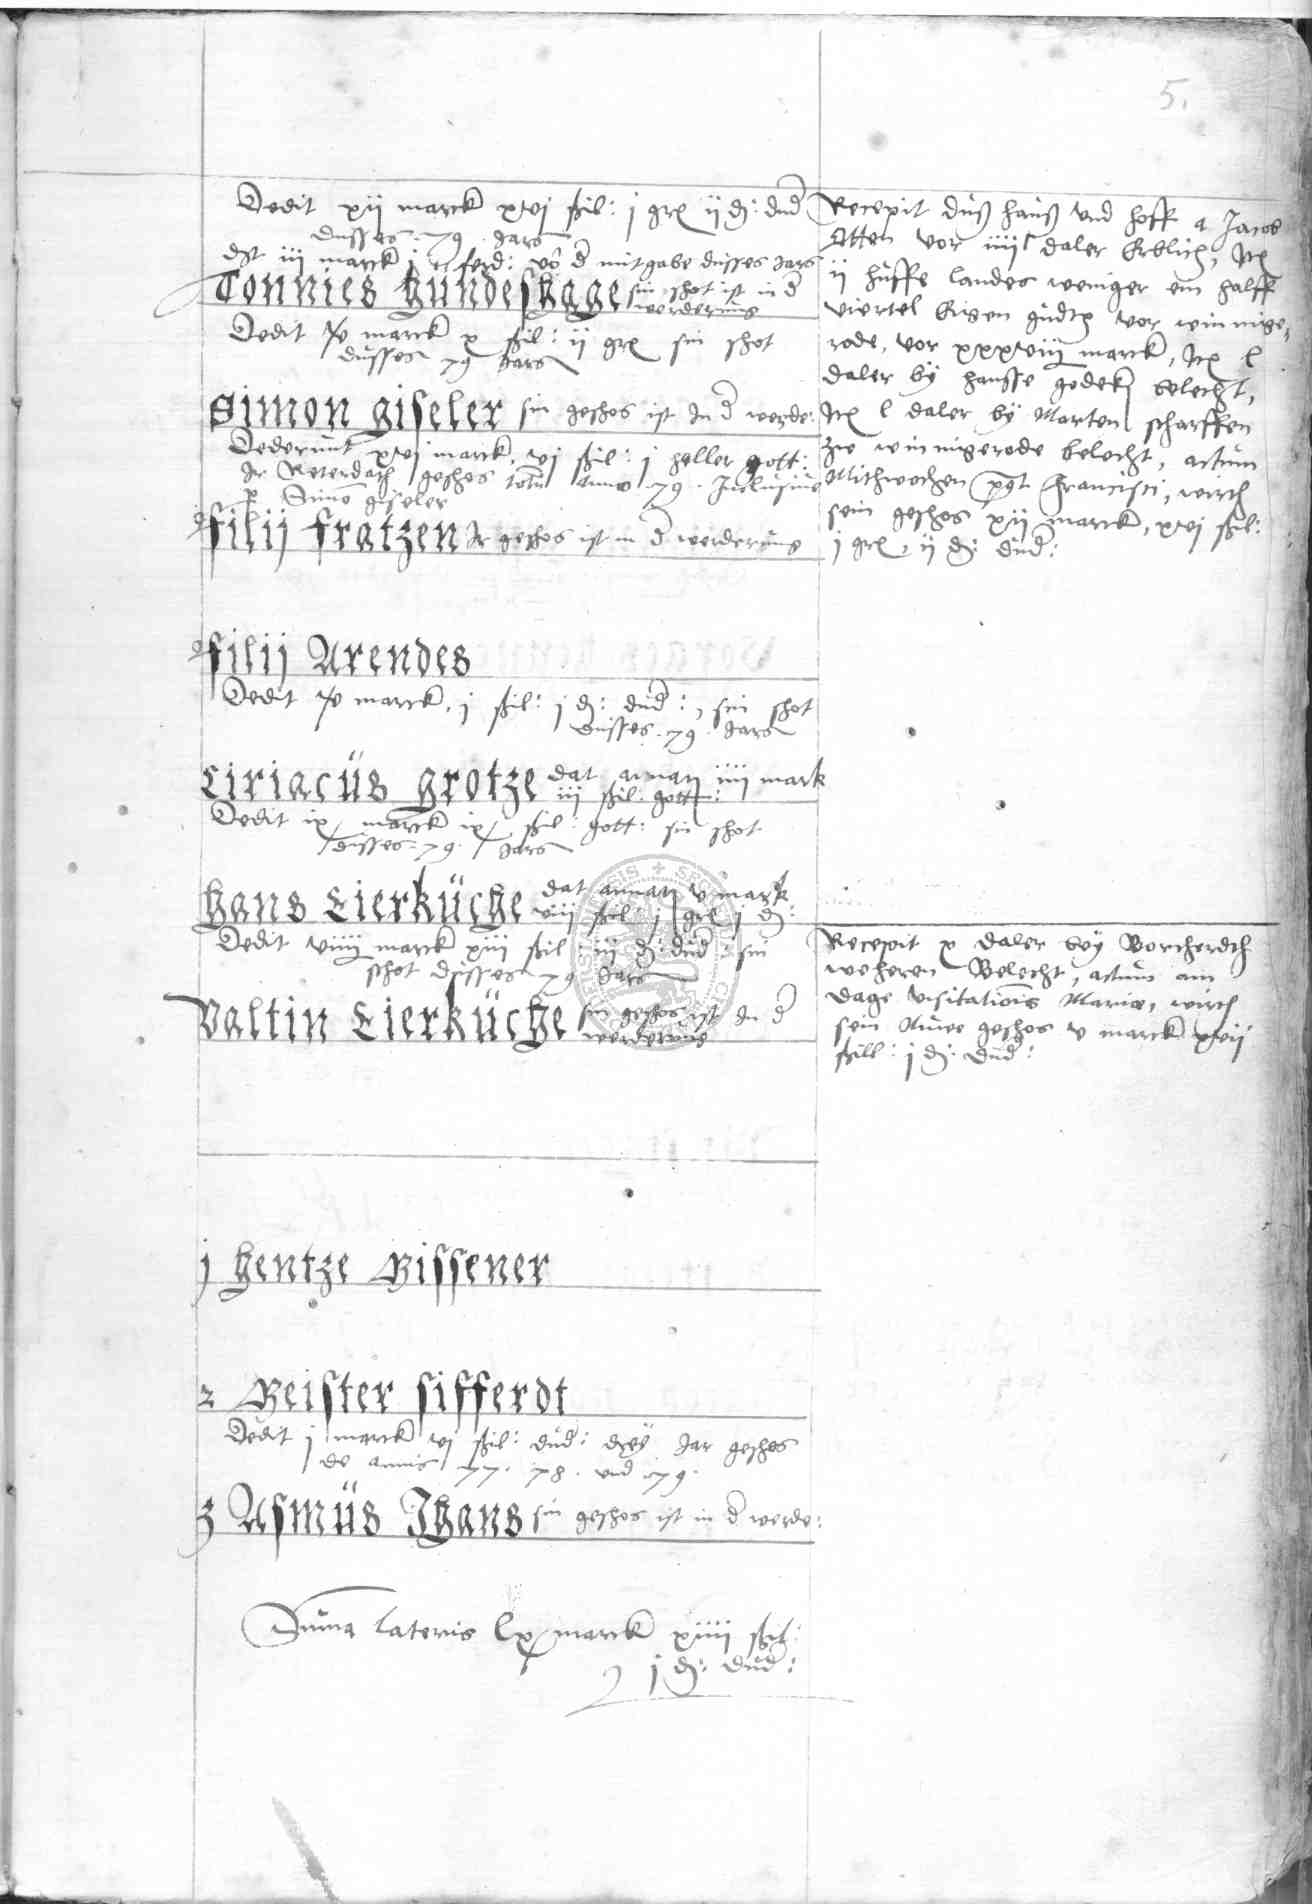 5.
Dedit xij marck xvj ßil: j gr ij d: dud
dusses . 79 . Jars
dt iij marck j ferd: vo d mitgabe dusses Jars
Tonnies hundeshage sin shot ist in d
werderung
Dedit marck x ßil: ij gr sin shot
dusses 79 Jars
Simon giseler sin geshos ist In d werde:
Dederunt xvj marck, vj ßil: j heller gott:
Ir geshos anno 79 . Inclusive
p Simo giseler
filij fratzen Ir geshos ist in d werderung
filij Arendes
Dedit marck, j ßil: j d: dud:, sin shot
dusses . 79 . Jars
Ciriacus grotze dat iiij mark
iij ßil: gott:
Dedit ix marck ix ßil: gott: sin shot
dusses . 79 . Jars
hans Eierkuche dat v mark
viij ßil: j gr j d:
Dedit viiij marck xiij ßil: iij d: dud: sin
schot dusses 79 Jars
Valtin Eierkuche sin geshos ist In d
werderung
j hentze Missener
2 Meister sifferdt
Dedit j marck vj ßil: dud: drey Jar geshos
de annis 77. 78. und 79.
3 Asmus Jhans sin geshos ist in d werde:
Suma lateris lx marck xiiij ßil:
j d: dud:
Recepit duß hauß und hoff a Jacob
Otten vor daler Erblich, It
ij huffe landes weniger ein halff
viertel Eigen gudt vor winnige,
rode, vor xxxviij marck, It l
daler by hansse gedek belecht,
It l daler by Marten scharffen
zw winnigerode belecht, actum
Mithwochen Francisci, wirt
sein geshos xij marck, xvj ßil:
j gr, ij d: dud:
Recepit x daler bey Borcherdt
weheren Belecht, actum am
dage visitationis Mariæ, wirt
sein Nuwe geshos v marck xvij
ßill: j d: dud: